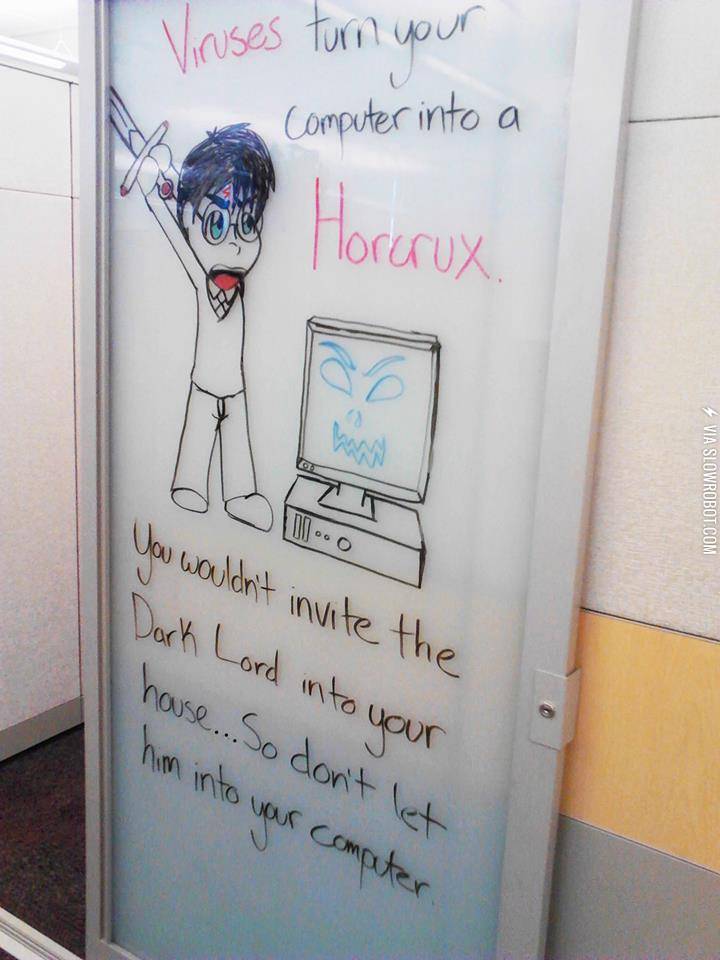 Viruses turn your
computer into a
Horcrux.
You wouldn't invite the
Dark Lord into your
house... So don't let
him into your computer.
VIA SLOWROBOT.COM